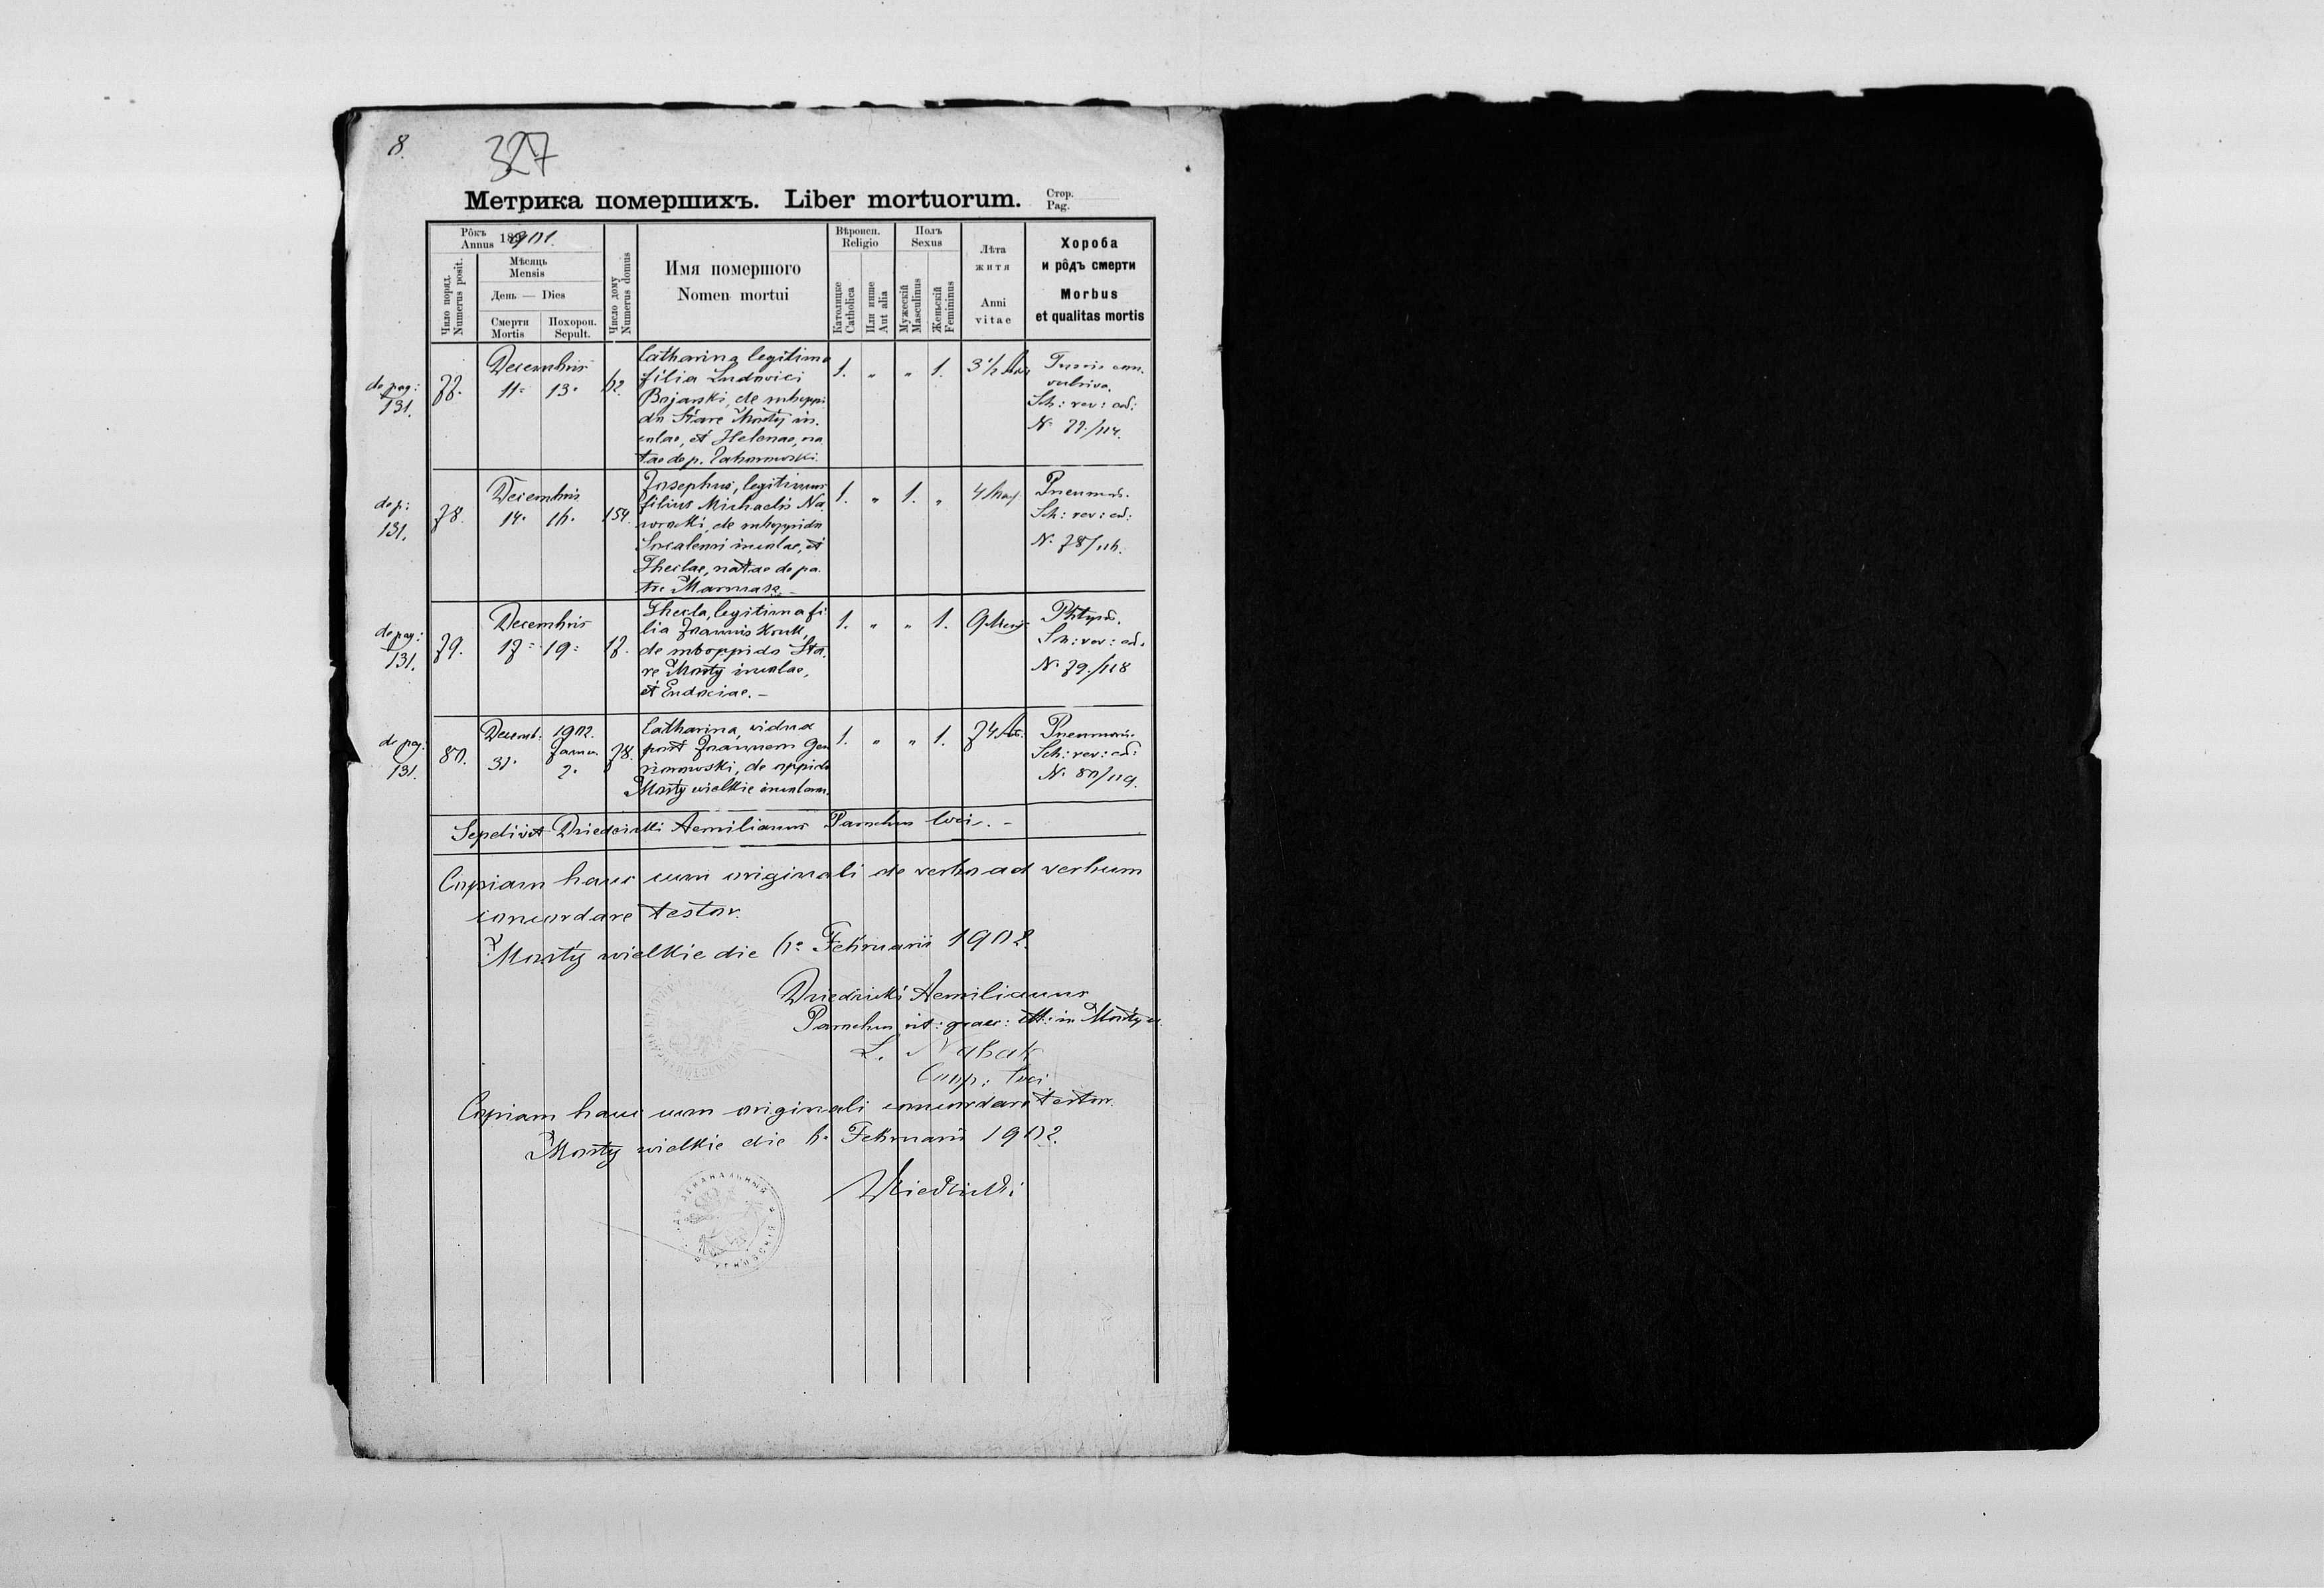 8.
327
Метрика помершихъ. Liber mortuorum. Стор. Pag.
Рôкъ Annus 1901.
Мѣсяць Mensis
День — Dies
Смерти Mortis
Похорон. Sepult.
Чило поряд. Numerus posit.
Число дому Numerus domus
Имя помершого
Nomen mortui
Вѣроисп. Religio
Католицке Catholica
Или инше Aut alia
Полъ Sexus
Мужескій Masculinus
Женьскій Femininus
Лѣта житя
Anni vitae
Хороба
и рôдъ смерти
Morbus
et qualitas mortis
de pag: 131.
77.
Decembris
11. 13.
62.
Catharina legitima
filia Ludovici
Bojarski, de suboppi
do Stare Mosty in.
colae, et Helenae, na
tae de p.
1. " " 1.
3 1/2
Tussis con.
vulsiva.
Sch: rev: od:
N. 77./114.
de p: 131.
78.
Decembris
14. 16.
154.
Josephus, legitimus
filius Michaelis Na
worocki, de suboppido
incolae, et
Theclae, natae de pa.
tre
1. " 1. "
4
Pneumon.
Sch: rev: od:
N. 78/116.
de pag: 131.
79.
Decembris
17. 19.
17.
Thecla, legitima fi
lia Joannis Kruk,
de suboppido Sta.
re Mosty incolae,
et Eudociae. –
1. " " 1.
9 Mens.
Sch: rev: od:
N. 79./118
de pag: 131.
80.
Decemb: 1902.
Januar.
31. 2.
78.
Catharina, vidua
post Joannem
de oppido
Mosty wielkie incolam.
1. " " 1.
74
Pneumonia.
Sch: rev: od:
N. 80/119.
Sepelivit Dziedzicki Aemilianus Parochus loci. –
Copiam hanc cum originali de verbo ad verbum
concordare testor.
Mosty wielkie die 6. Februarii 1902.
Dziedzicki Aemilianus
Parochus rit: graec: cath: in Mosty w.
Coop: loci
Copiam hanc cum originali concordare testor.
Mosty wielkie die 6. Februarii 1902.
Dziedzicki